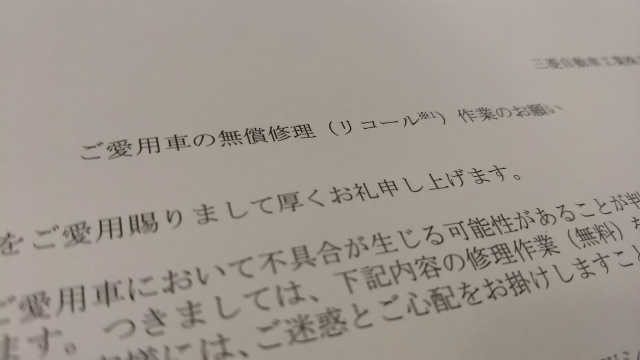 三菱自動車工業株
ご愛用車の無償修理（リコール※1）作業のお願い
をご愛用賜りまして厚くお礼申し上げます。
ご愛用車において不具合が生じる可能性があることが判
ます。つきましては、下記内容の修理作業（無料）を
には、ご迷惑とご心配をお掛けしますこと